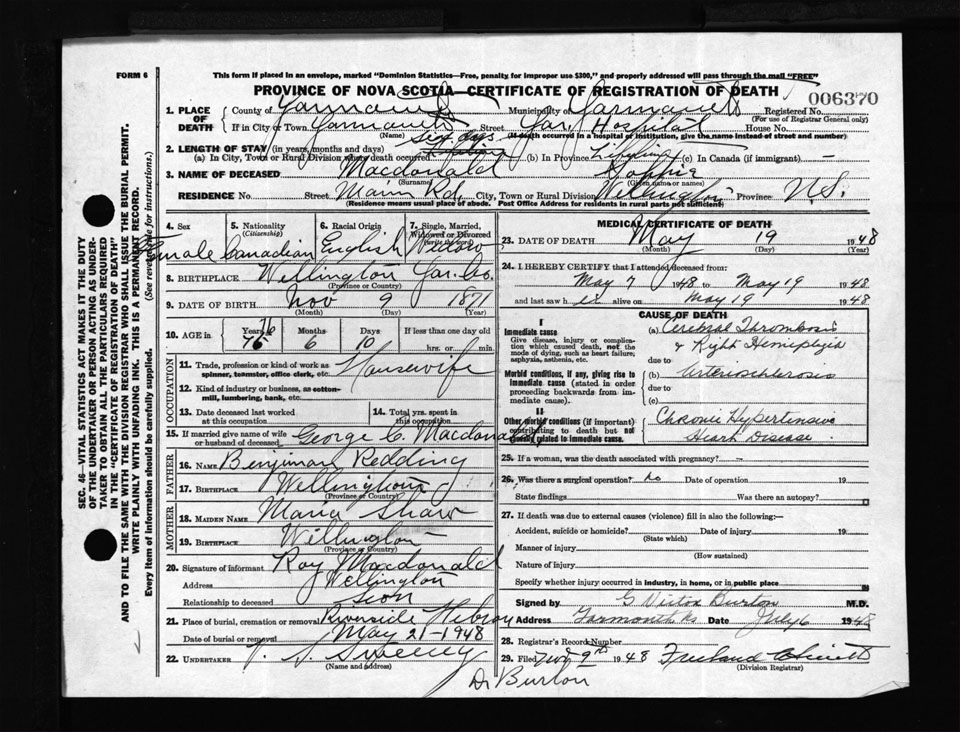 FORM 6
This form if placed in an envelope, marked "Dominion Statistics—Free, penalty for improper use $300," and properly addressed will pass through the mail "FREE"
PROVINCE OF NOVA SCOTIA—CERTIFICATE OF REGISTRATION OF DEATH
006370
1. PLACE OF DEATH
County of Yarmouth Municipality of Yarmouth Registered No.
(For use of Registrar General only)
If in City or Town Yarmouth Street Yar. Hospital House No.
(Name) (If death occurred in a hospital or institution, give the name instead of street and number)
2. LENGTH OF STAY (in years, months and days) six days
(a) In City, Town or Rural Division where death occurred (b) In Province Lifetime (c) In Canada (if immigrant) —
3. NAME OF DECEASED Macdonald Sophie
(Surname) (Given name or names)
RESIDENCE No. Street Main Rd. City, Town or Rural Division Wellington Province N.S.
(Residence means usual place of abode. Post Office Address for residents in rural parts not sufficient)
4. Sex Female
5. Nationality (Citizenship) Canadian
6. Racial Origin English
7. Single, Married, Widowed or Divorced (Write the word) Widow
8. BIRTHPLACE Wellington Yar. Co.
(Province or Country)
9. DATE OF BIRTH Nov 9 1871
(Month) (Day) (Year)
10. AGE in Years 76 Months 6 Days 10 If less than one day old
hrs. or min.
OCCUPATION
11. Trade, profession or kind of work as spinner, teamster, office clerk, etc. Housewife
12. Kind of industry or business, as cotton-mill, lumbering, bank, etc.
13. Date deceased last worked at this occupation
14. Total yrs. spent in this occupation
15. If married give name of wife or husband of deceased George C. Macdonald
FATHER
16. NAME Benjiman Redding
17. BIRTHPLACE Wellington
(Province or Country)
MOTHER
18. MAIDEN NAME Maria Shaw
19. BIRTHPLACE Wellington
(Province or Country)
20. Signature of informant Roy Macdonald
Address Wellington
Relationship to deceased Son
21. Place of burial, cremation or removal Riverside Hebron
Date of burial or removal May 21-1948
22. UNDERTAKER V. S. Sweeney
(Name and address)
Dr Burton
MEDICAL CERTIFICATE OF DEATH
23. DATE OF DEATH May 19 1948
(Month) (Day) (Year)
24. I HEREBY CERTIFY that I attended deceased from:
May 7 1948 to May 19 1948
and last saw her alive on May 19 1948
CAUSE OF DEATH
I
Immediate cause
Give disease, injury or complication which caused death, not the mode of dying, such as heart failure, asphyxia, asthenia, etc.
(a) Cerebral Thrombosis
& Right Hemiplegia
due to
Morbid conditions, if any, giving rise to immediate cause (stated in order proceeding backwards from immediate cause).
(b) Arteriosclerosis
due to
(c)
II
Other morbid conditions (if important) contributing to death but not causally related to immediate cause.
Chronic Hypertensive
Heart Disease
25. If a woman, was the death associated with pregnancy? —
26. Was there a surgical operation? no Date of operation 19
State findings Was there an autopsy?
27. If death was due to external causes (violence) fill in also the following:—
Accident, suicide or homicide? Date of injury 19
(State which)
Manner of injury
(How sustained)
Nature of injury
Specify whether injury occurred in industry, in home, or in public place
Signed by G Victor Burton M.D.
Address Yarmouth NS Date July 6 1948
28. Registrar's Record Number
29. Filed 9th 1948 
(Division Registrar)
SEC. 46—VITAL STATISTICS ACT MAKES IT THE DUTY OF THE UNDERTAKER OR PERSON ACTING AS UNDERTAKER TO OBTAIN ALL THE PARTICULARS REQUIRED IN THE "CERTIFICATE OF REGISTRATION OF DEATH" AND TO FILE THE SAME WITH THE DIVISION REGISTRAR WHO SHALL ISSUE THE BURIAL PERMIT.
WRITE PLAINLY WITH UNFADING INK. THIS IS A PERMANENT RECORD.
Every item of information should be carefully supplied. (See reverse side for instructions.)